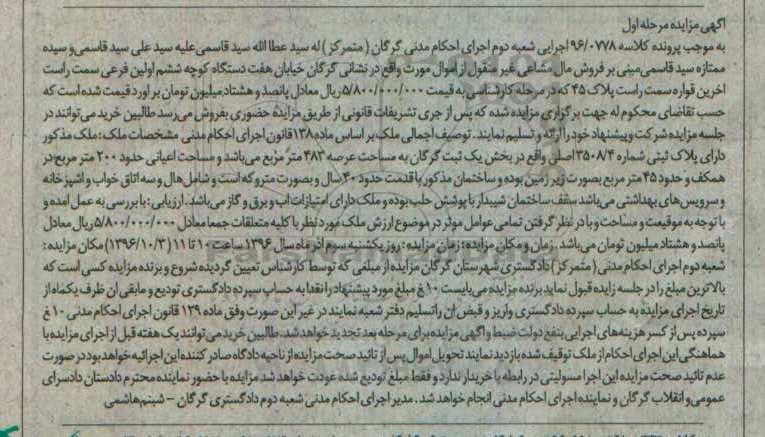 آگهی مزایده مرحله اول
به موجب پرونده کلاسه ۹۶/۰۷۷۸ اجرایی شعبه دوم اجرای احکام مدنی گرگان (متمرکز) له سید عطا الله سید قاسمی علیه سید علی سید قاسمی و سیده
ممتازه سید قاسمی مبنی بر فروش مال مشاعی غیر منقول از اموال مورث واقع در نشانی گرگان خیابان هفت دستگاه کوچه ششم اولین فرعی سمت راست
اخرین قواره سمت راست پلاک ۴۵ که در مرحله کارشناسی به قیمت ۵/۸۰۰/۰۰۰/۰۰۰ ریال معادل پانصد و هشتاد میلیون تومان بر اورد قیمت شده است که
حسب تقاضای محکوم له جهت برگزاری مزایده شده که پس از جری تشریفات قانونی از طریق مزایده حضوری بفروش می رسد طالبین خرید می توانند در
جلسه مزایده شرکت و پیشنهاد خود را ارائه و تسلیم نمایند. توصیف اجمالی ملک بر اساس ماده ۱۳۸ قانون اجرای احکام مدنی مشخصات ملک: ملک مذکور
دارای پلاک ثبتی شماره ۳۵۰۸/۴ اصلی واقع در بخش یک ثبت گرگان به مساحت عرصه ۴۸۳ متر مربع می باشد و مساحت اعیانی حدود ۲۰۰ متر مربع در
همکف و حدود ۴۵ متر مربع بصورت زیر زمین بوده و ساختمان مذکور با قدمت حدود ۴۰ سال و بصورت متروکه است و شامل هال و سه اتاق خواب و اشپزخانه
و سرویس های بهداشتی می باشد سقف ساختمان شیبدار با پوشش حلب بوده و ملک دارای امتیازات اب و برق و گاز می باشد. ارزیابی: با بررسی به عمل امده و
با توجه به موقعیت و مساحت و با در نظر گرفتن تمامی عوامل موثر در موضوع ارزش ملک مورد نظر با کلیه متعلقات جمعا معادل ۵/۸۰۰/۰۰۰/۰۰۰ ریال معادل
پانصد و هشتاد میلیون تومان می باشد. زمان و مکان مزایده: زمان مزایده: روز یکشنبه سوم اذر ماه سال ۱۳۹۶ ساعت ۱۰ تا ۱۱ (۱۳۹۶/۱۰/۳) مکان مزایده:
شعبه دوم اجرای احکام مدنی (متمرکز) دادگستری شهرستان گرگان مزایده از مبلغی که توسط کارشناس تعیین گردیده شروع و برنده مزایده کسی است که
بالاترین مبلغ را در جلسه زایده قبول نماید برنده مزایده می بایست ۱۰ غ مبلغ مورد پیشنهاد را نقدا به حساب سپرده دادگستری تودیع و مابقی ان ظرف یکماه از
تاریخ اجرای مزایده به حساب سپرده دادگستری واریز و قبض ان را تسلیم دفتر شعبه نمایند در غیر این صورت وفق ماده ۱۲۹ قانون اجرای احکام مدنی ۱۰ غ
سپرده پس از کسر هزینه های اجرایی بنفع دولت ضبط و اگهی مزایده برای مرحله بعد تجدید خواهد شد. طالبین خرید می توانند یک هفته قبل از اجرای مزایده با
هماهنگی این اجرای احکام از ملک توقیف شده بازدید نمایند تحویل اموال پس از تائید صحت مزایده از ناحیه دادگاه صادر کننده این اجرائیه خواهد بود در صورت
عدم تائید صحت مزایده این اجرا مسولیتی در رابطه با خریدار ندارد و فقط مبلغ تودیع شده عودت خواهد شد مزایده با حضور نماینده محترم دادستان دادسرای
عمومی و انقلاب گرگان و نماینده اجرای احکام مدنی انجام خواهد شد. مدیر اجرای احکام مدنی شعبه دوم دادگستری گرگان – شبنم هاشمی